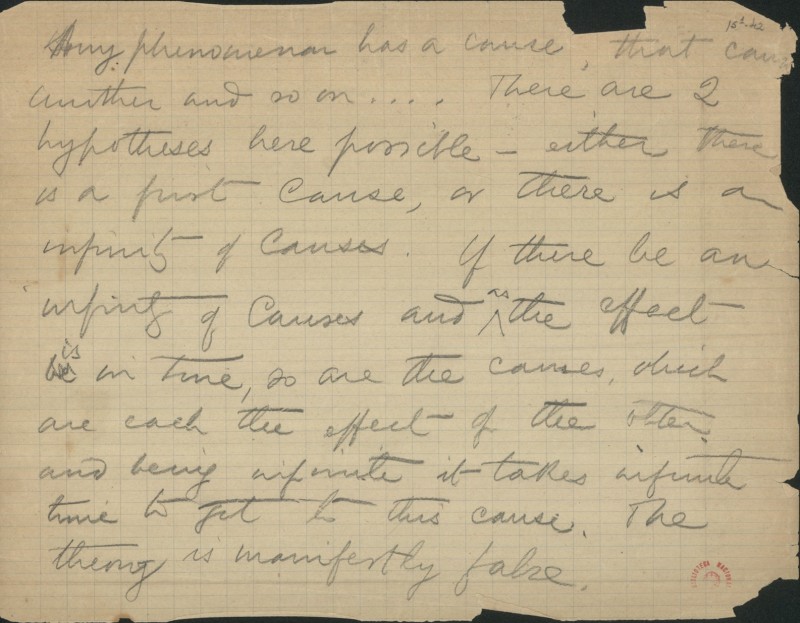 15¹-42
Any phenomenon has a cause, that cause
another and so on.... There are 2
hypotheses here possible — either there
is a first Cause, or there is an
infinity of Causes. If there be an
infinity of Causes and as the effect
is in time, so are the causes, which
are each the effect of the other,
and being infinite it takes infinite
time to get to this cause. The
theory is manifestly false.
BIBLIOTECA NACIONAL